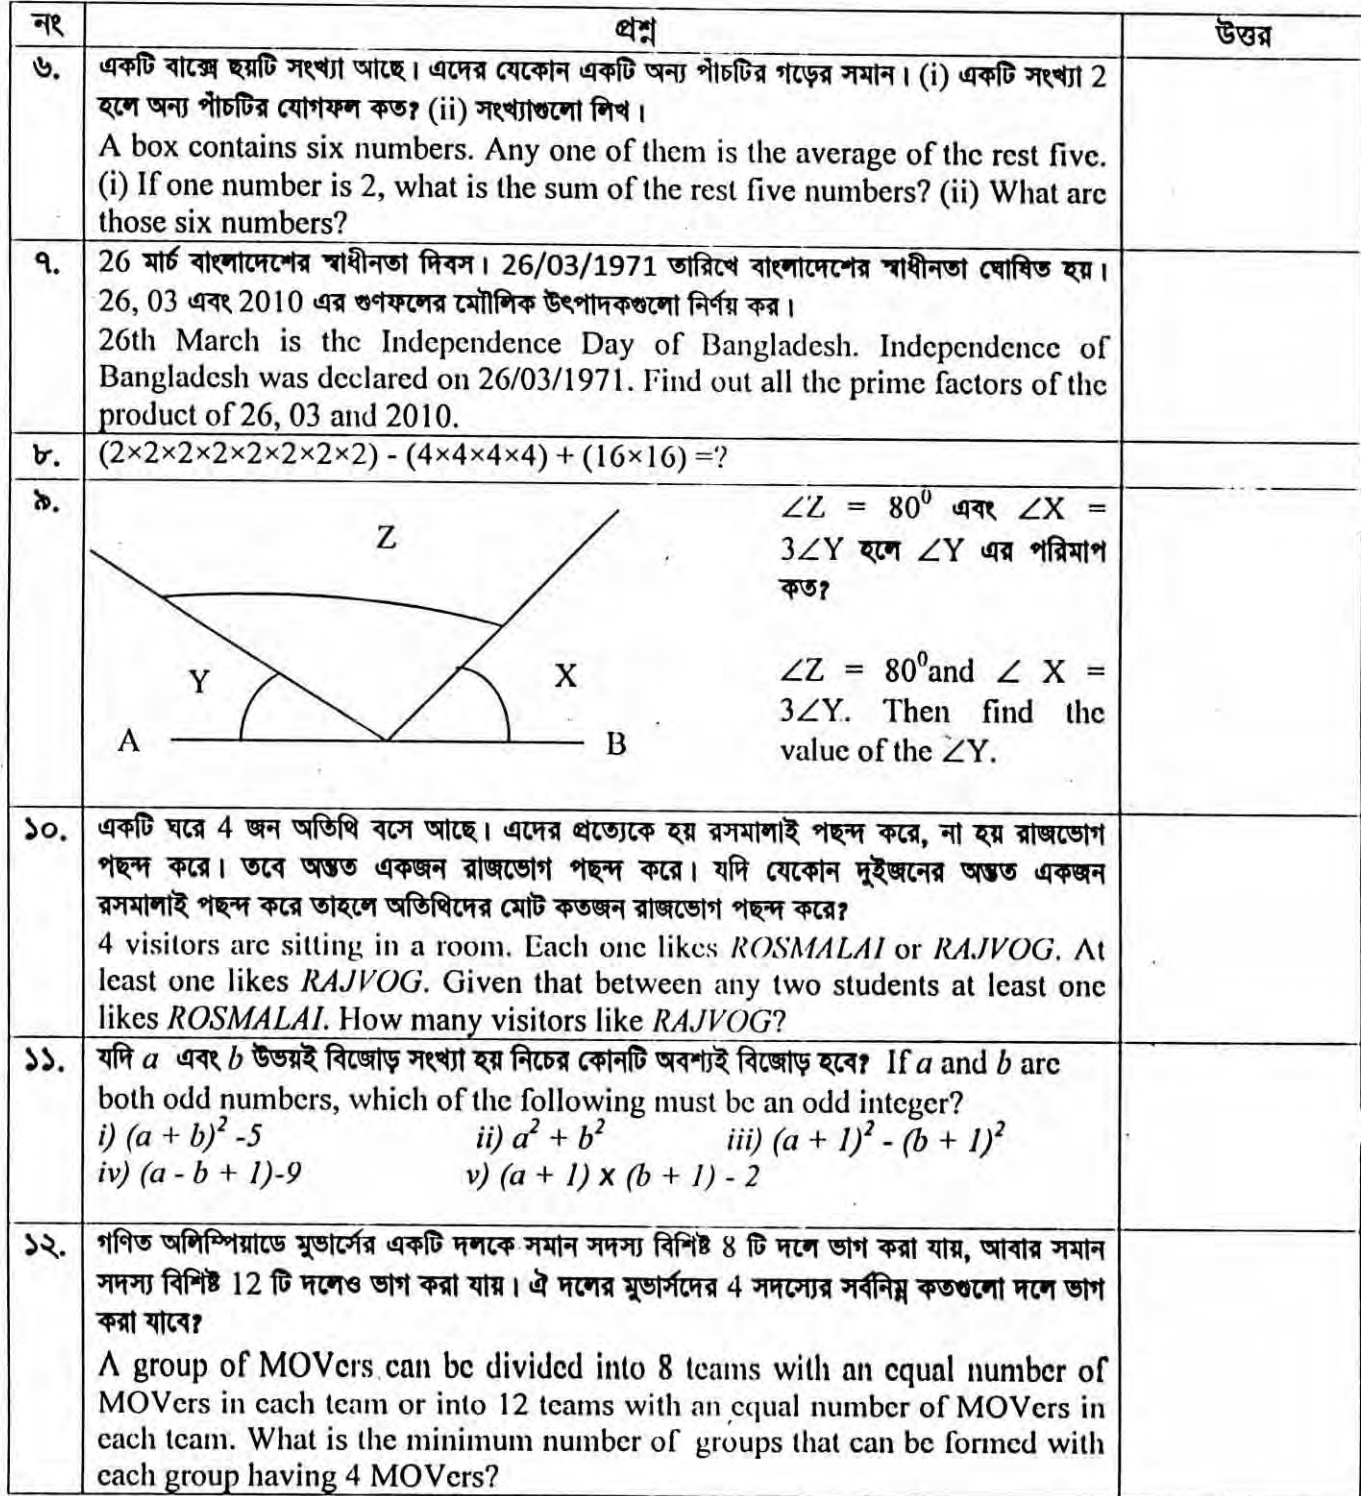 নং প্রশ্ন উত্তর
৬. একটি বাক্সে ছয়টি সংখ্যা আছে। এদের যেকোন একটি অন্য পাঁচটির গড়ের সমান। (i) একটি সংখ্যা 2
হলে অন্য পাঁচটির যোগফল কত? (ii) সংখ্যাগুলো লিখ।
A box contains six numbers. Any one of them is the average of the rest five.
(i) If one number is 2, what is the sum of the rest five numbers? (ii) What are
those six numbers?
৭. 26 মার্চ বাংলাদেশের স্বাধীনতা দিবস। 26/03/1971 তারিখে বাংলাদেশের স্বাধীনতা ঘোষিত হয়।
26, 03 এবং 2010 এর গুণফলের মৌলিক উৎপাদকগুলো নির্ণয় কর।
26th March is the Independence Day of Bangladesh. Independence of
Bangladesh was declared on 26/03/1971. Find out all the prime factors of the
product of 26, 03 and 2010.
৮. (2×2×2×2×2×2×2×2) - (4×4×4×4) + (16×16) =?
৯. ∠Z = 80⁰ এবং ∠X =
3∠Y হলে ∠Y এর পরিমাপ
কত?
∠Z = 80⁰and ∠ X =
3∠Y. Then find the
value of the ∠Y.
Z
Y X
A B
১০. একটি ঘরে 4 জন অতিথি বসে আছে। এদের প্রত্যেকে হয় রসমালাই পছন্দ করে, না হয় রাজভোগ
পছন্দ করে। তবে অন্তত একজন রাজভোগ পছন্দ করে। যদি যেকোন দুইজনের অন্তত একজন
রসমালাই পছন্দ করে তাহলে অতিথিদের মোট কতজন রাজভোগ পছন্দ করে?
4 visitors are sitting in a room. Each one likes ROSMALAI or RAJVOG. At
least one likes RAJVOG. Given that between any two students at least one
likes ROSMALAI. How many visitors like RAJVOG?
১১. যদি a এবং b উভয়ই বিজোড় সংখ্যা হয় নিচের কোনটি অবশ্যই বিজোড় হবে? If a and b are
both odd numbers, which of the following must be an odd integer?
i) (a + b)² -5 ii) a² + b² iii) (a + 1)² - (b + 1)²
iv) (a - b + 1)-9 v) (a + 1) x (b + 1) - 2
১২. গণিত অলিম্পিয়াডে মুভার্সের একটি দলকে সমান সদস্য বিশিষ্ট 8 টি দলে ভাগ করা যায়, আবার সমান
সদস্য বিশিষ্ট 12 টি দলেও ভাগ করা যায়। ঐ দলের মুভার্সদের 4 সদস্যের সর্বনিম্ন কতগুলো দলে ভাগ
করা যাবে?
A group of MOVers can be divided into 8 teams with an equal number of
MOVers in each team or into 12 teams with an equal number of MOVers in
each team. What is the minimum number of groups that can be formed with
each group having 4 MOVers?